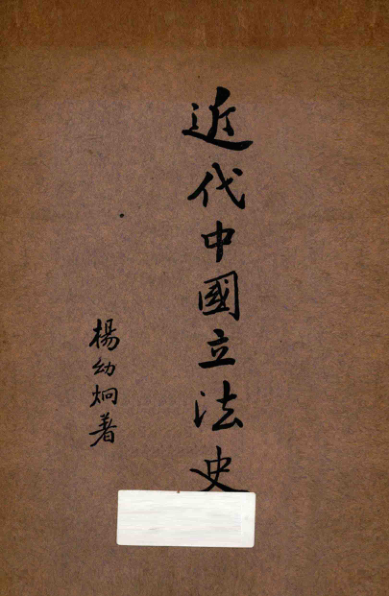 近代中國立法史
楊幼炯著